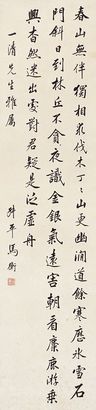 春山無伴獨相求伐木丁丁山更幽澗道餘寒歷冰雪石
門斜日到林丘不貪夜識金銀氣遠害朝看麋鹿游乘
興杳然迷出處對君疑是泛虛舟
一清先生雅屬
叔平馬衡